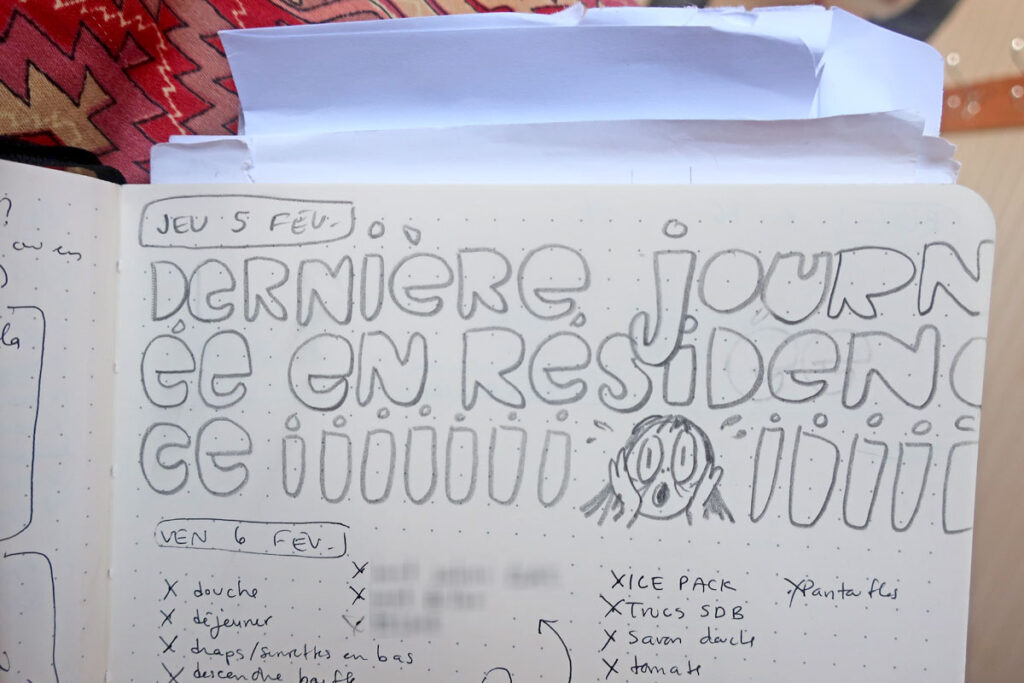 ?
la
JEU 5 FÉV.
DERNIÈRE JOURN
ÉE EN RÉSIDENC
CE iiiiiii iiiiii
VEN 6 FÉV.
X douche
X déjeuner
X draps/serviettes en bas
X descendre
X
X
X
X ICE PACK
X TRUCS SDB
X Savon douche
X tomate
X Pantoufles